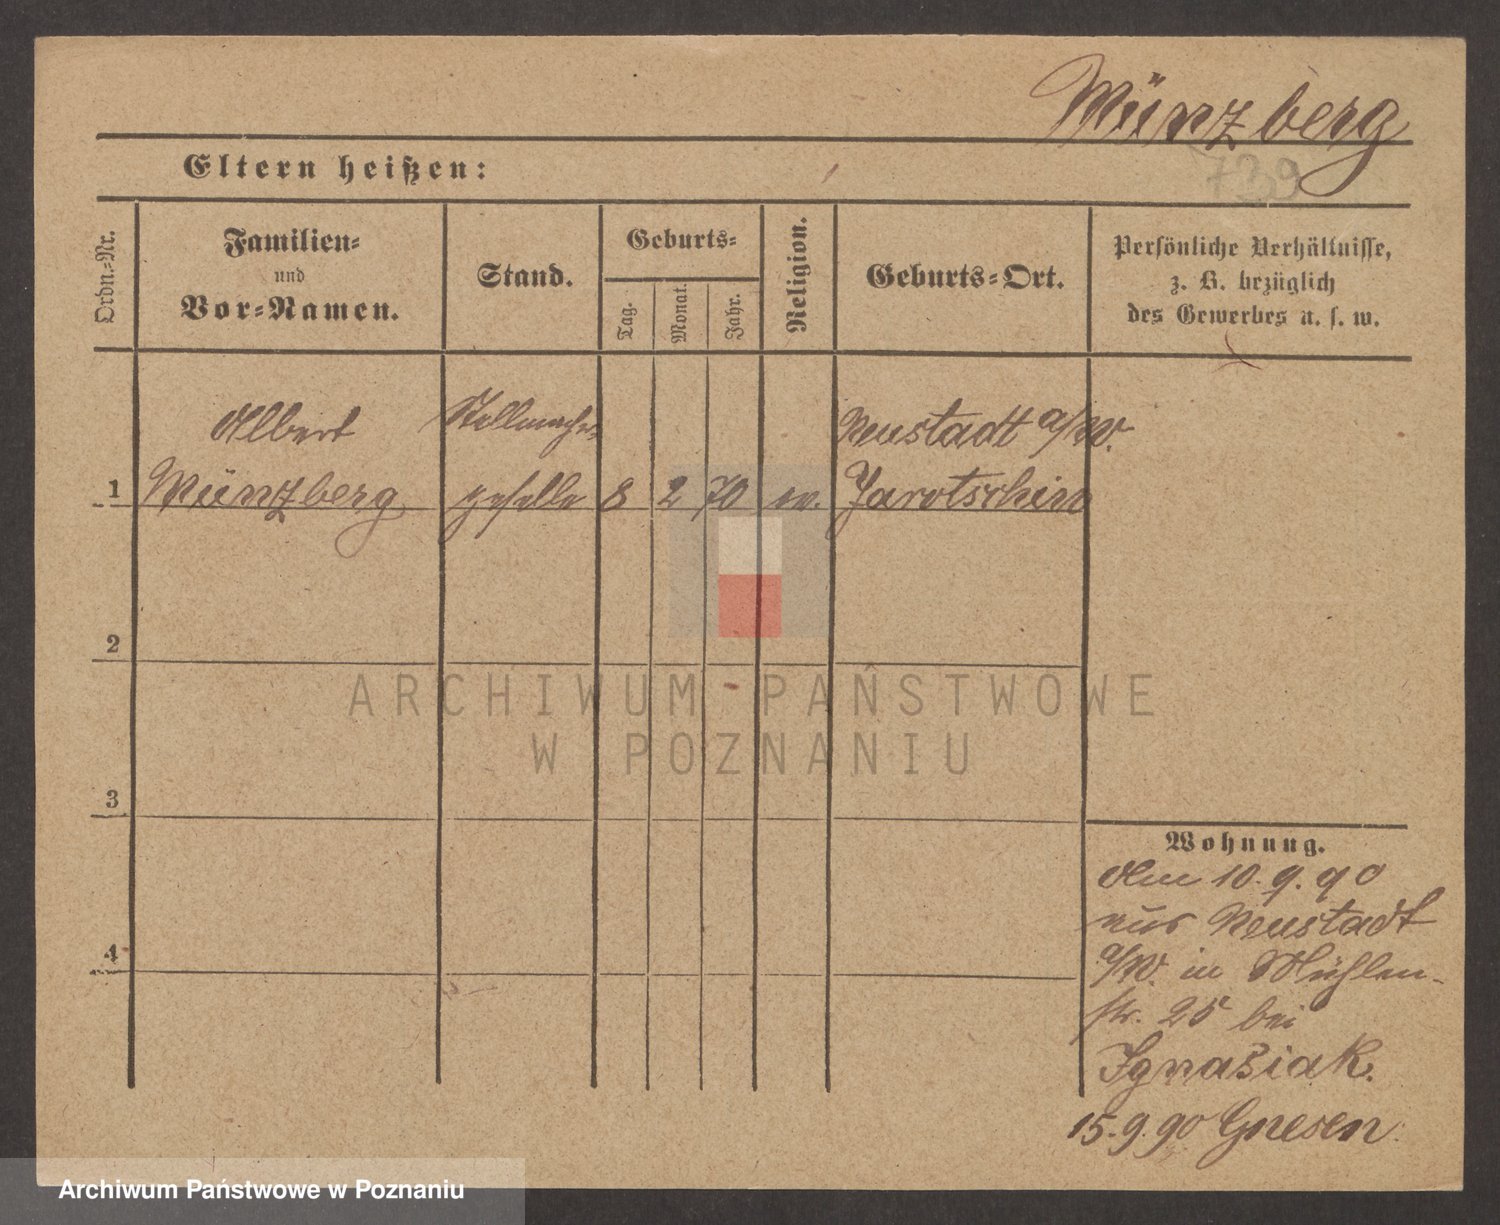 Münzberg
739
Eltern heißen:
Ordn.=Nr.
Familien=
und
Vor=Namen.
Stand.
Geburts=
Tag.
Monat.
Jahr.
Religion.
Geburts=Ort.
Persönliche Verhältnisse,
z. B. bezüglich
des Gewerbes u. s. w.
Albert
Stellmacher
Neustadt a/W.
1
Münzberg
geselle
8
2
70
ev.
Jarotschin
2
ARCHIWUM PAŃSTWOWE
W POZNANIU
3
Wohnung.
Am 10.9.90
aus Neustadt
a/W. in Mühlen-
str. 25 bei
Ignasiak.
4
15.9.90 Gnesen.
Archiwum Państwowe w Poznaniu